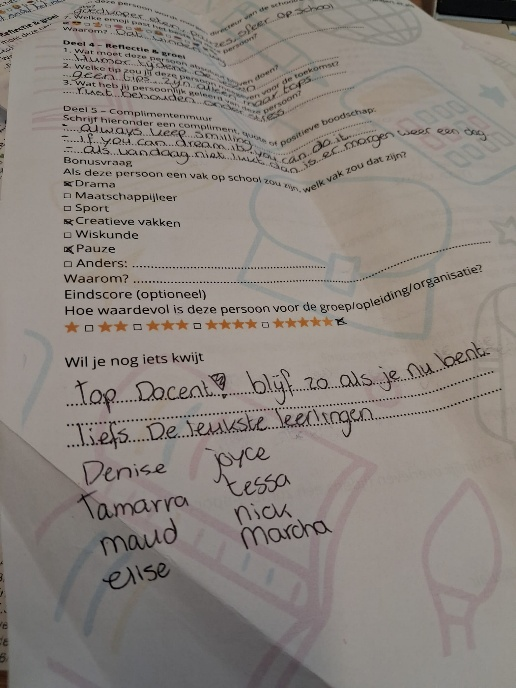 Waarom?
Deel 4 - Reflectie & groei
1. Wat moet deze persoon
Humor tijdens de
2. Welke tip zou jij deze persoon voor de toekomst?
geen tips zijn alleen maar tops
3. Wat heb jij persoonlijk geleerd van deze persoon?
rust behouden onder stress
Deel 5 – Complimentenmuur
Schrijf hieronder een compliment, quote of positieve boodschap:
always keep smiling
if you can dream it, you can do it
als vandaag niet lukt dan is er morgen weer een dag
Bonusvraag
Als deze persoon een vak op school zou zijn, welk vak zou dat zijn?
☒ Drama
☐ Maatschappijleer
☐ Sport
☒ Creatieve vakken
☐ Wiskunde
☒ Pauze
☐ Anders:
Waarom?
Eindscore (optioneel)
Hoe waardevol is deze persoon voor de groep/opleiding/organisatie?
★ ☐ ★★ ☐ ★★★ ☐ ★★★★ ☐ ★★★★★ ☒
Wil je nog iets kwijt
Top Docent! blijf zo als je nu bent.
liefs De leukste leerlingen
Denise joyce
Tamarra tessa
maud nick
elise Marcha